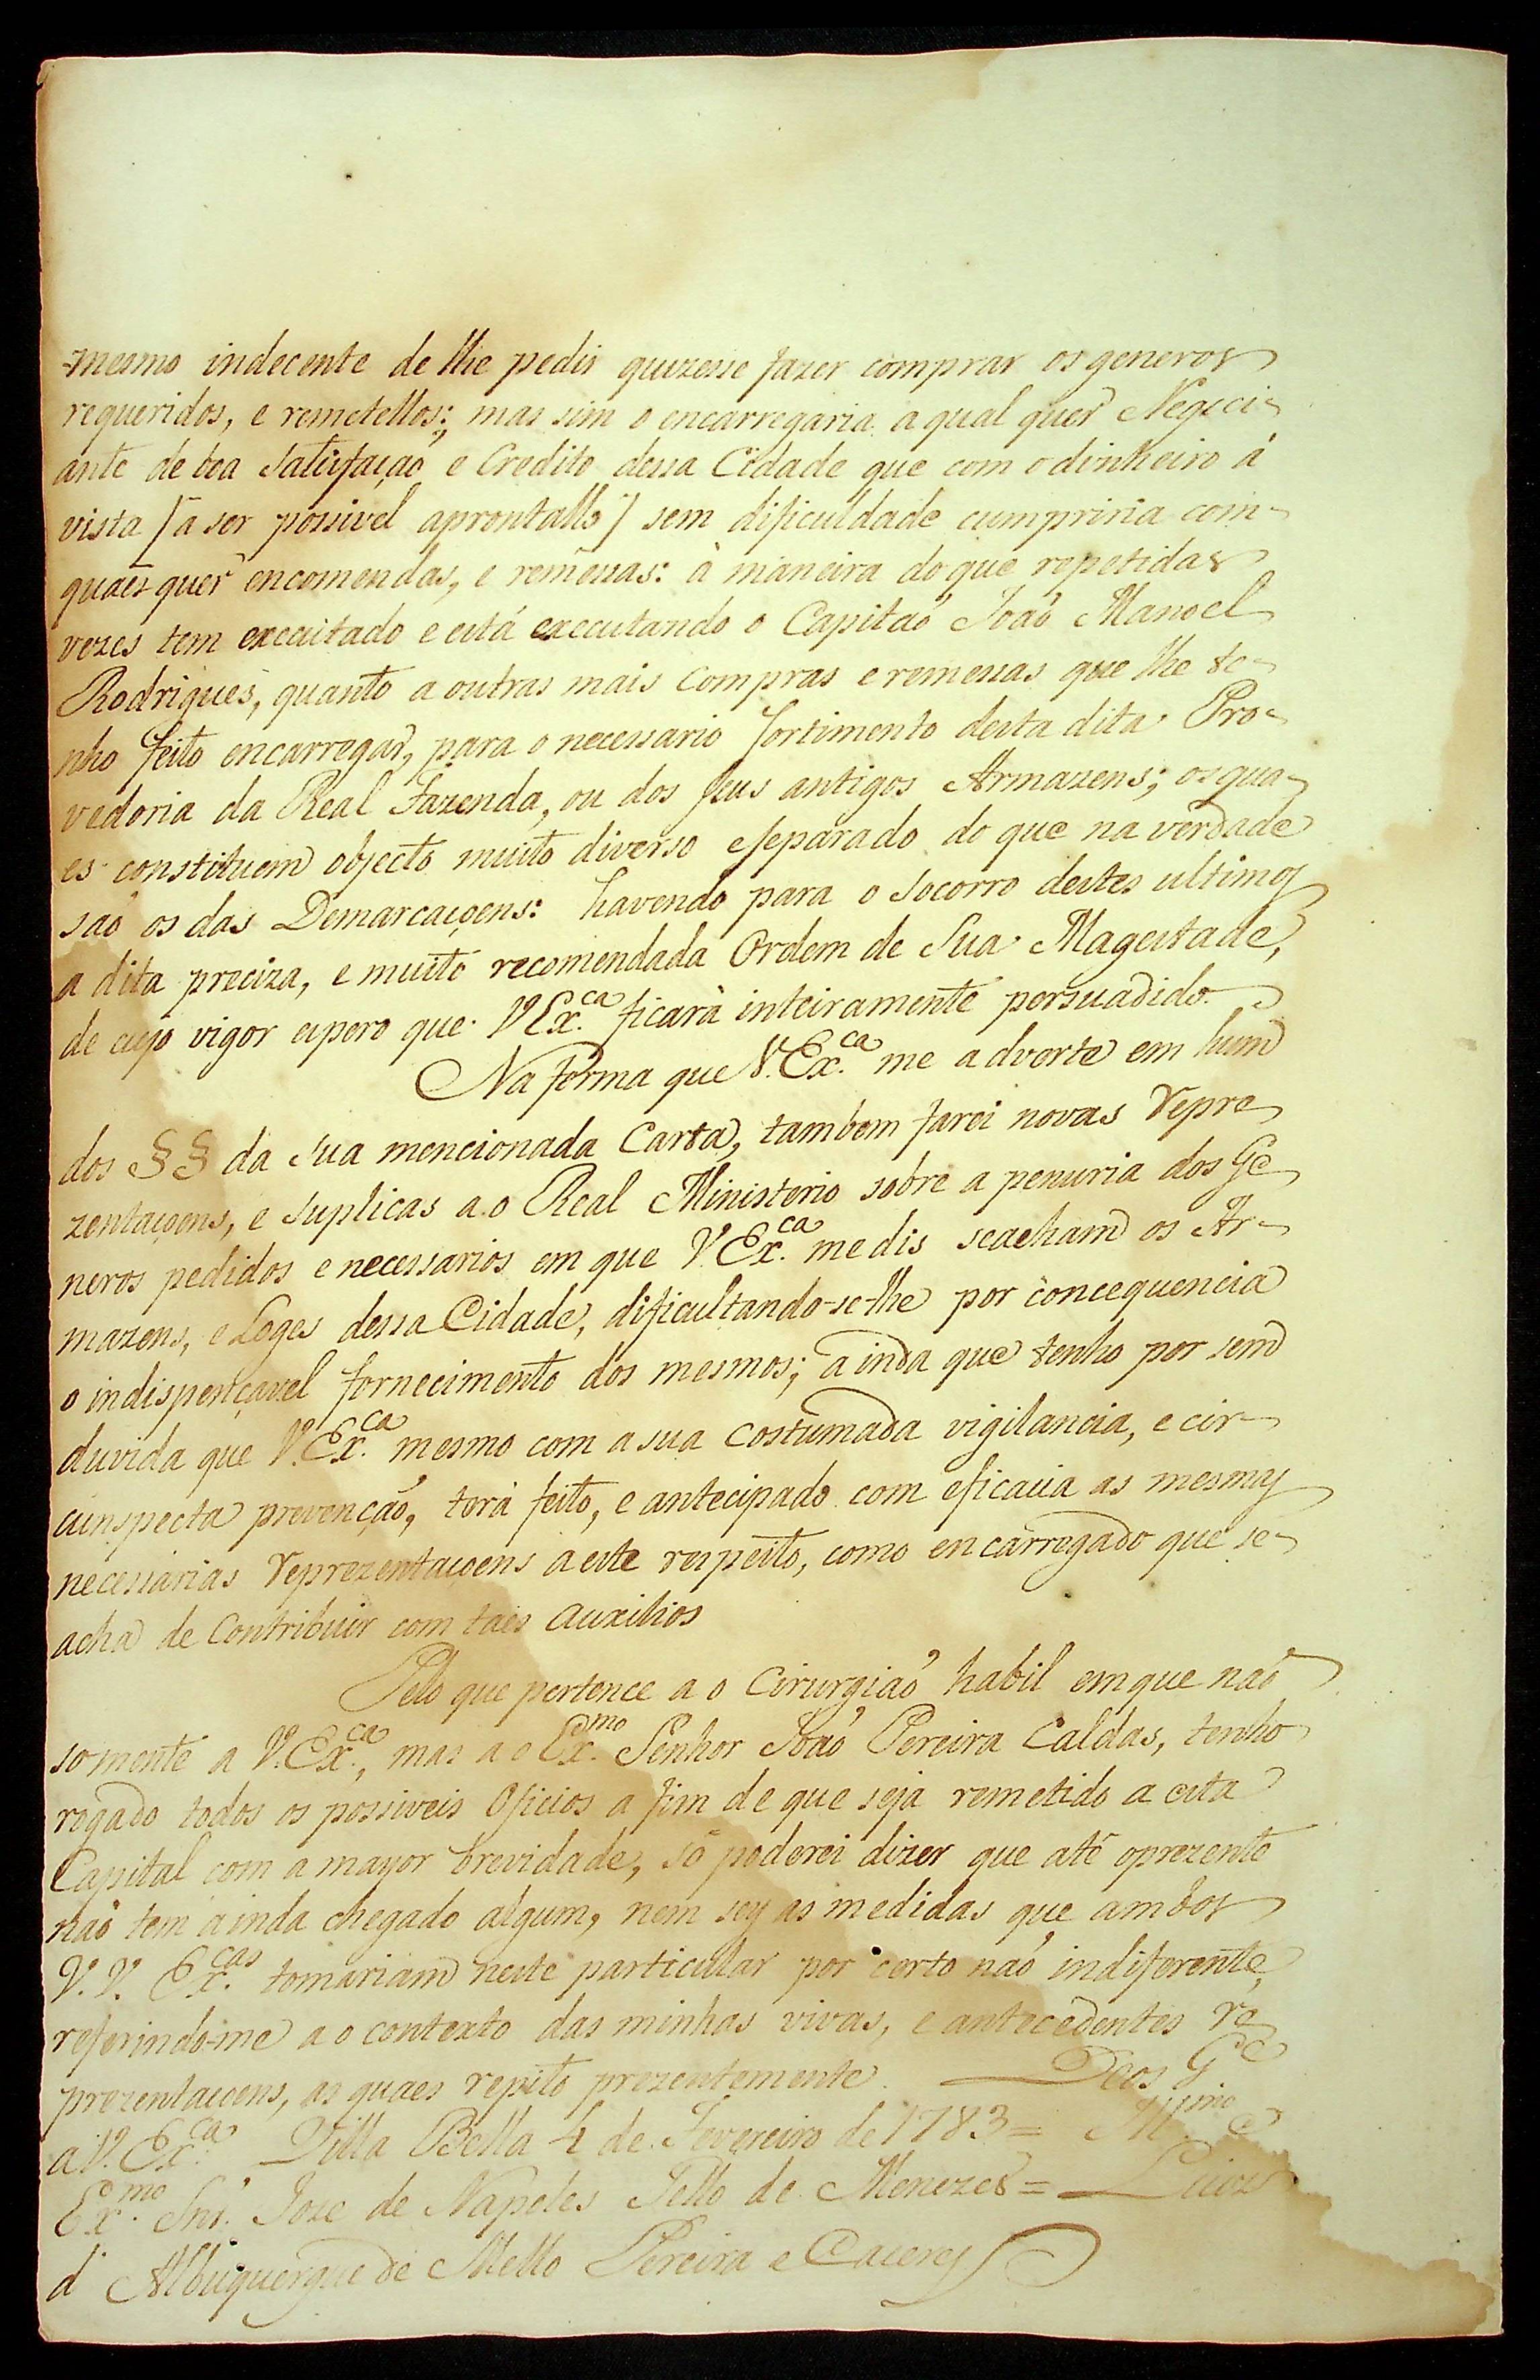 -mesmo indecente de lhe pedir quizesse fazer comprar os generos
requeridos, e remetellos; mas sim o encarregaria a qual quer Negoci-
ante de boa satisfaçaõ e Credito dessa Cidade que com o dinheiro á
vista [a ser possivel aprontallo] sem dificuldade cumpriria com
quaes quer encomendas, e remessas: à maneira do que repetidas
vezes tem executado e está executando o Capitaõ Joaõ Manoel
Rodrigues, quanto a outras mais compras e remessas que lhe te-
nho feito encarregar, para o necessario sortimento desta dita Pro-
vedoria da Real Fazenda, ou dos seus antigos Armazens; os qua-
es constituem objecto muito diverso e separado do que na verdade
saõ os das Demarcaçoens: havendo para o socorro destes ultimos
a dita preciza, e muito recomendada Ordem de Sua Magestade,
de cujo vigor espero que V Ex.ca ficarà inteiramente persuadido.
Na forma que V. Ex.ca me adverte em hum
dos §§ da sua mencionada Carta, tambem farei novas repre
zentaçoens, e suplicas a o Real Ministerio sobre a penuria dos Ge
neros pedidos e necessarios em que V. Ex.ca me dis se acham os Ar-
mazens, e Loges dessa Cidade, dificultando-se-lhe por concequencia
o indispençavel fornecimento dos mesmos; ainda que tenho por sem
duvida que V. Ex.ca mesmo com a sua costumada vigilancia, e cir-
cunspecta prevenção, terá feito, e antecipado com eficacia as mesmas
necessarias reprezentaçoens a este respeito, como encarregado que se
acha de Contribuir com taes auxilios
Pelo que pertence a o Cirurgiaõ habil em que naõ
somente a V. Ex.ca, mas a o Ex.mo Senhor Joaõ Pereira Caldas, tenho
rogado todos os possiveis Oficios a fim de que seja remetido a esta
Capital com a mayor brevidade, só poderei dizer que até o prezente
naõ tem ainda chegado algum, nem sey as medidas que ambos
V. V. Ex.cas tomariam neste particular por certo naõ indiferente,
referindo-me a o contexto das minhas vivas, e antecedentes re
prezentaçoens, as quaes repito prezentemente. Deos G.de
a V. Ex.ca Villa Bella 4 de Fevereiro de 1783 = Ill.mo e
Ex.mo Snr. Joze de Napoles Tello de Menezes = Luiz
d' Albuquerque de Mello Pereira e Caceres